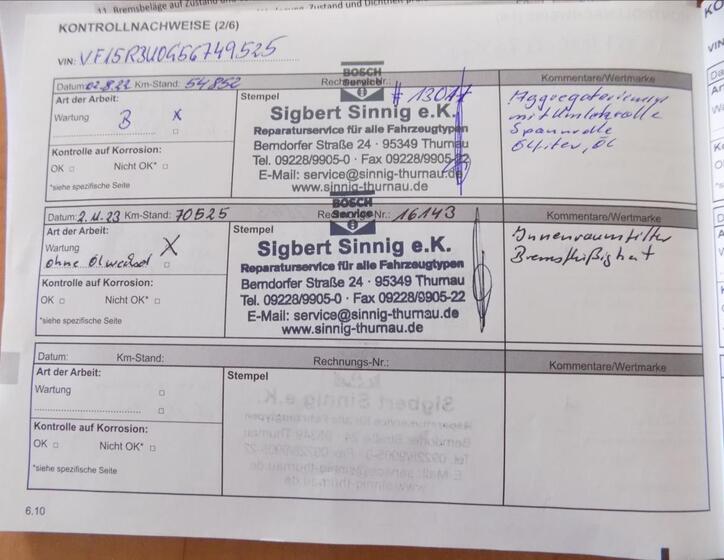 11. Bremsbeläge auf Zustand und
Zustand und Dichten
KONTROLLNACHWEISE (2/6)
VIN: VF15R3U0G56749525
Datum: 02.8.22 Km-Stand: 54852 Rechnungs-Nr.: # 13017 Kommentare/Wertmarke
Art der Arbeit:
Wartung B X
Kontrolle auf Korrosion:
OK □ Nicht OK* □
*siehe spezifische Seite
Stempel
BOSCH
Service
Sigbert Sinnig e.K.
Reparaturservice für alle Fahrzeugtypen
Berndorfer Straße 24 · 95349 Thurnau
Tel. 09228/9905-0 · Fax 09228/9905-22
E-Mail: service@sinnig-thurnau.de
www.sinnig-thurnau.de
Aggregateriemen
mit Umlenkrolle
Spannrolle
Ölfilter, Öl
Datum: 2.11.23 Km-Stand: 70525 Rechnungs-Nr.: 16143 Kommentare/Wertmarke
Art der Arbeit:
Wartung X
ohne Ölwechsel □
Kontrolle auf Korrosion:
OK □ Nicht OK* □
*siehe spezifische Seite
Stempel
BOSCH
Service
Sigbert Sinnig e.K.
Reparaturservice für alle Fahrzeugtypen
Berndorfer Straße 24 · 95349 Thurnau
Tel. 09228/9905-0 · Fax 09228/9905-22
E-Mail: service@sinnig-thurnau.de
www.sinnig-thurnau.de
Innenraumfilter
Bremsflüßigkeit
Datum: Km-Stand: Rechnungs-Nr.: Kommentare/Wertmarke
Art der Arbeit:
Wartung □
□
Kontrolle auf Korrosion:
OK □ Nicht OK* □
*siehe spezifische Seite
Stempel
6.10